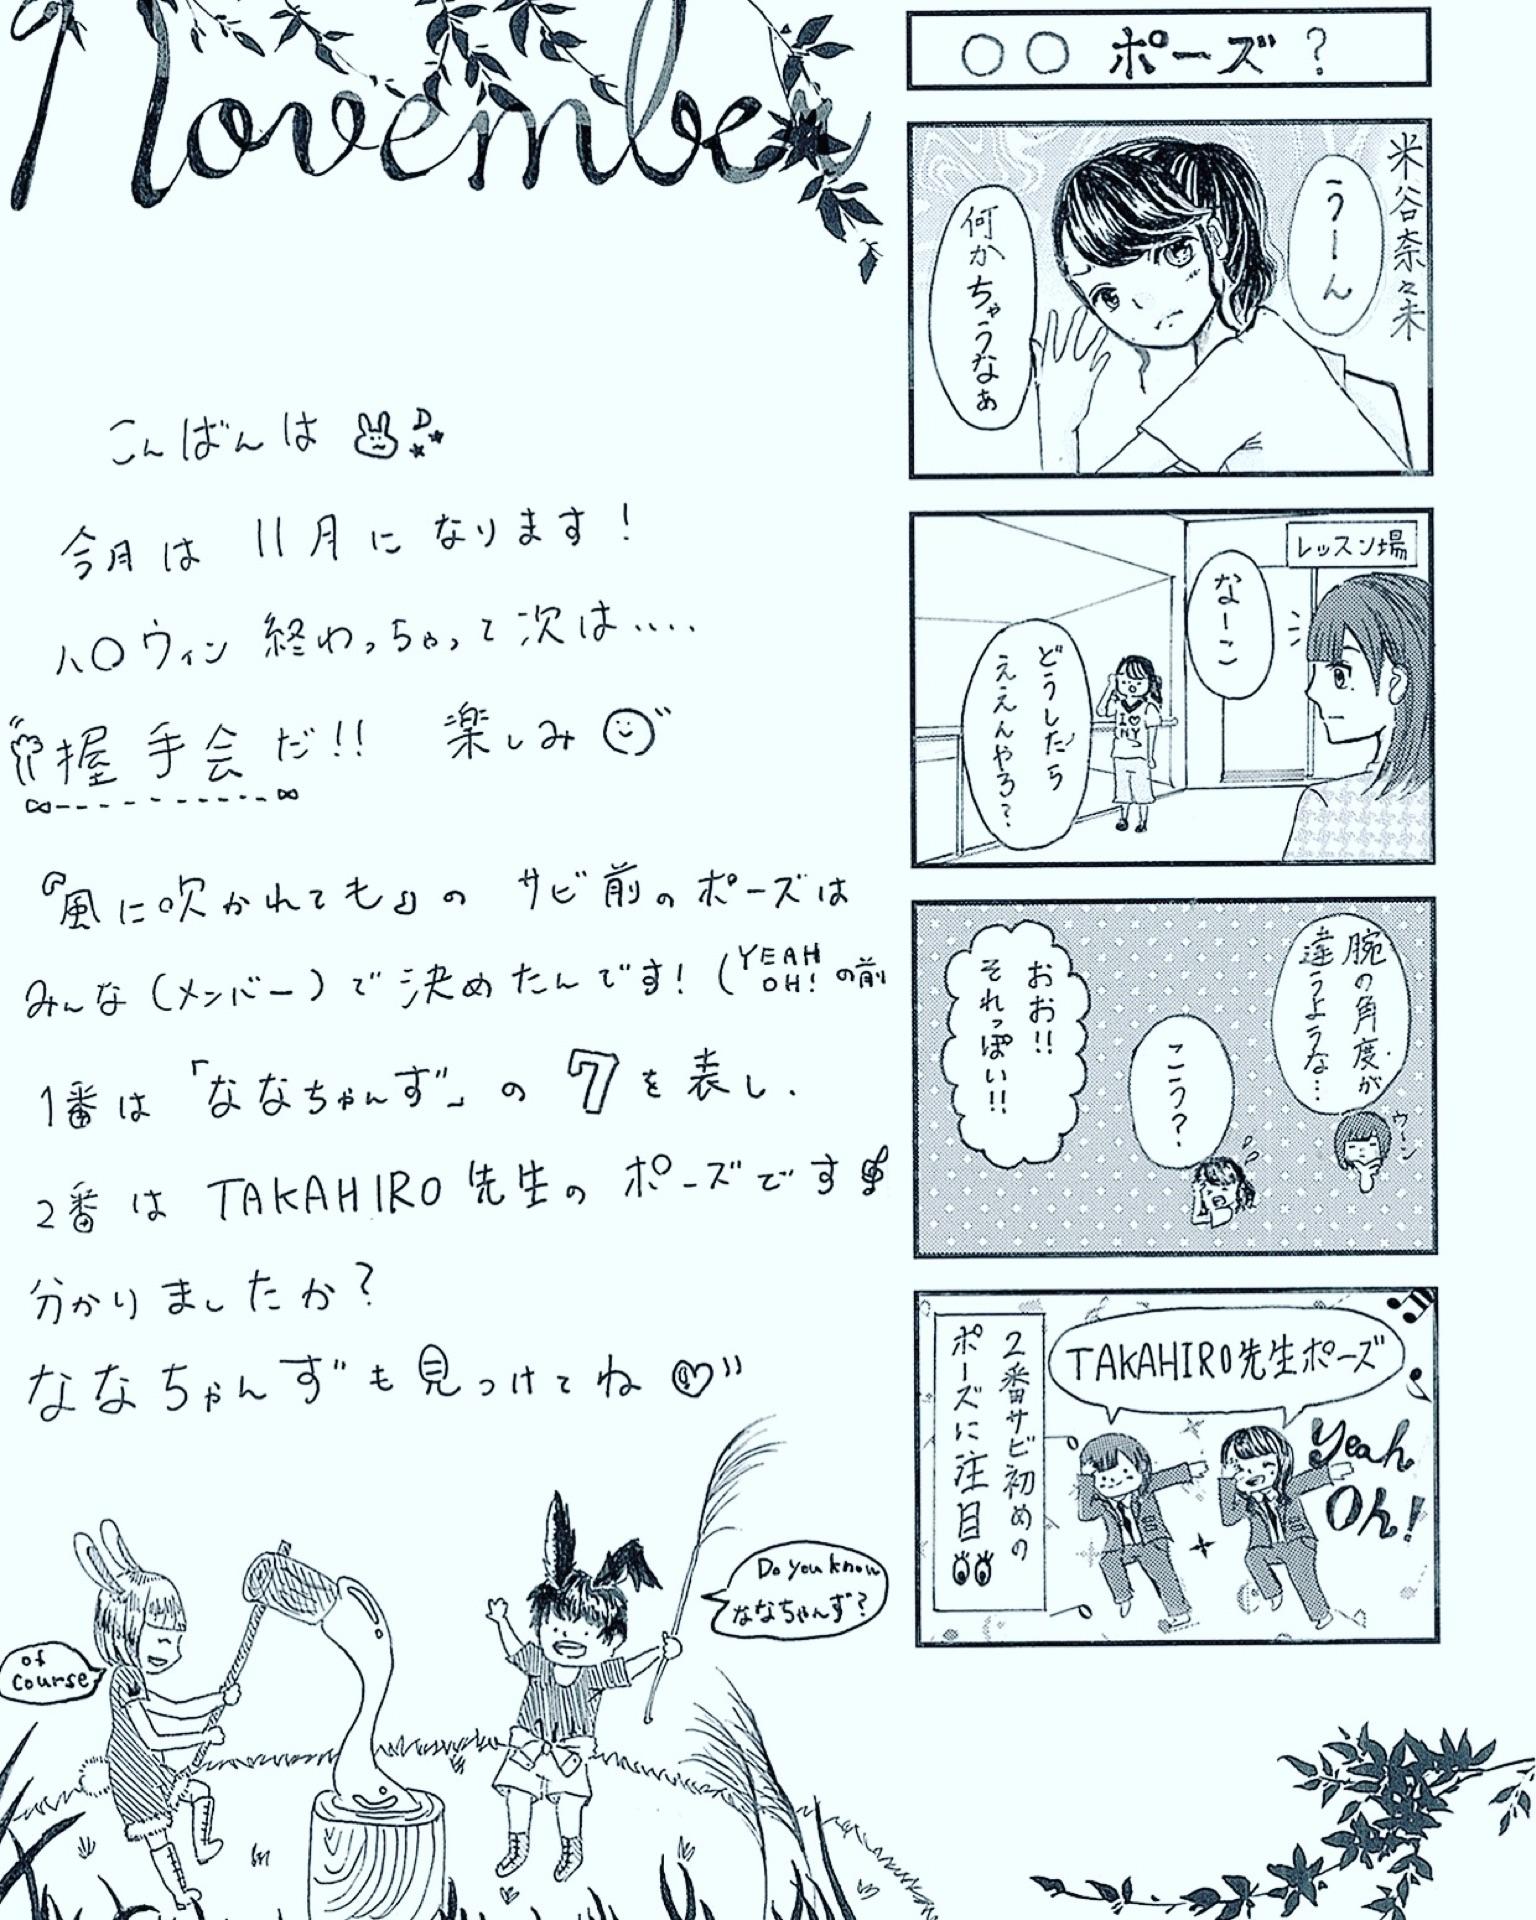 November
こんばんは
今月は 11月に なります!
ハロウィン 終わっちゃって次は....
握手会だ!! 楽しみ
『風に吹かれても』の サビ前のポーズは
みんな(メンバー)で決めたんです!(YEAH OH!の前
1番は「ななちゃんず」の 7を表し、
2番は TAKAHIRO先生の ポーズです
分かりましたか?
ななちゃんずも見つけてね
Do you know
ななちゃんず?
of
course
〇〇 ポーズ?
米谷奈々未
うーん
何かちゃうなぁ
レッスン場
なーこ
どうしたら
ええんやろ?
腕の角度が
違うような…
ウーン
こう?
おお!!
それっぽい!!
TAKAHIRO先生ポーズ
Yeah
Oh!
2番サビ初めの
ポーズに注目
I ♡
NY